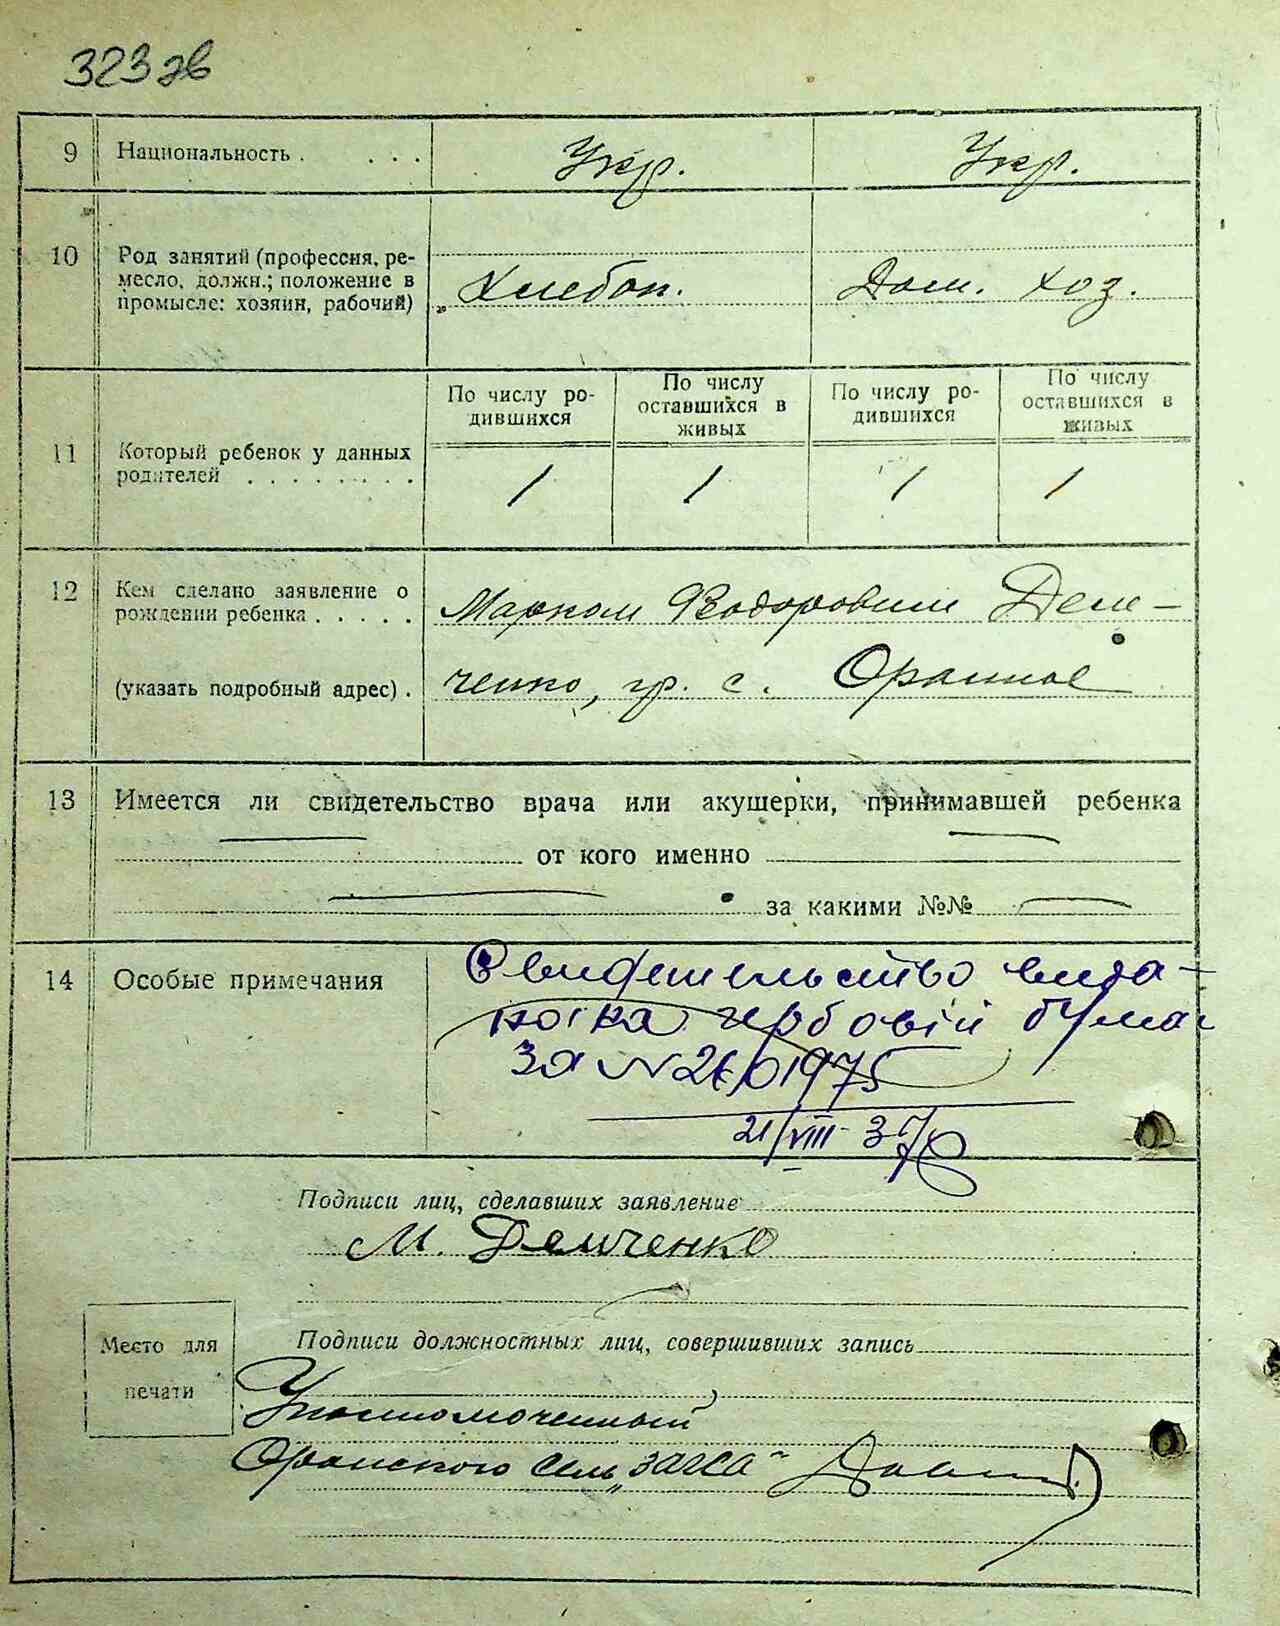 323 зв
9 Национальность . . . . Укр. Укр.
10 Род занятий (профессия, ре-
месло, должн.; положение в
промысле: хозяин, рабочий)
Хлебоп. Дом. хоз.
По числу ро-
дившихся
По числу
оставшихся в
живых
По числу ро-
дившихся
По числу
оставшихся в
живых
11 Который ребенок у данных
родителей . . . . . . . .
1 1 1 1
12 Кем сделано заявление о
рождении ребенка . . . . .
(указать подробный адрес) .
Марком Фводоровичем Дем-
ченко, гр. с. Оранное
13 Имеется ли свидетельство врача или акушерки, принимавшей ребенка
от кого именно
за какими №№
14 Особые примечания
Свидетельство вида-
гербовій бумаг
за №
21/VIII 37
Подписи лиц, сделавших заявление
М. Демченко
Место для
печати
Подписи должностных лиц, совершивших запись
Уполномоченный
Оранского сель „ЗАГСА"